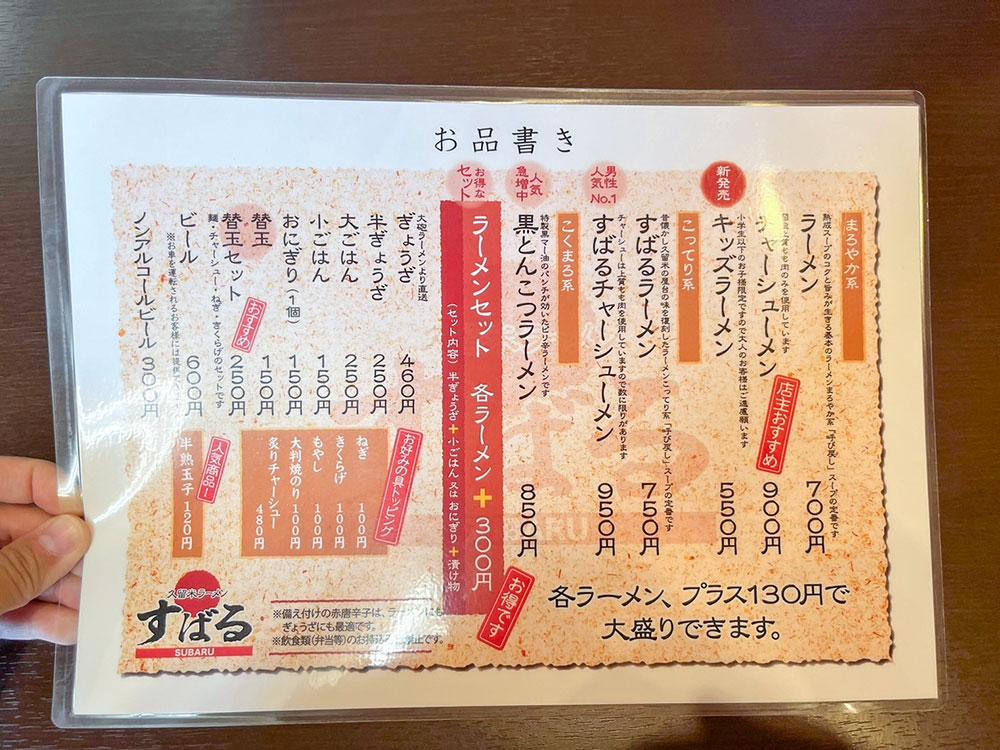 お品書き
まろやか系
熟成スープのコクと旨みが生きる基本のラーメンまろやか系「呼び戻し」スープの定番です
ラーメン 700円
もも肉のみを使用しています
チャーシューメン 900円
店主おすすめ
新発売
小学生以下のお子様限定ですので大人のお客様はご遠慮願います
キッズラーメン 550円
こってり系
昔懐かし久留米の屋台の味を復刻したラーメンこってり系「呼び戻し」スープの定番です
すばるラーメン 750円
男性人気No.1
チャーシューは上質もも肉を使用していますので数に限りがあります
すばるチャーシューメン 950円
こくまろ系
人気急増中
特製黒マー油のパンチが効いたピリ辛ラーメンです
黒とんこつラーメン 850円
お得なセット
ラーメンセット 各ラーメン+300円
(セット内容) 半ぎょうざ+小ごはん 又は おにぎり+漬け物
お得です
各ラーメン、プラス130円で
大盛りできます。
大砲ラーメンより直送
ぎょうざ 460円
半ぎょうざ 250円
大ごはん 250円
小ごはん 150円
おにぎり(1個) 150円
替玉 150円
替玉セット 250円
おすすめ
麺・チャーシュー・ねぎ・きくらげのセットです
ビール 600円
※お車を運転されるお客様には提供
ノンアルコールビール 300円
お好みの具トッピング
ねぎ 100円
きくらげ 100円
もやし 100円
大判焼のり 100円
炙りチャーシュー 480円
人気商品!
半熟玉子 120円
久留米ラーメン
すばる
SUBARU
※備え付けの赤唐辛子は、ラーメンにも
ぎょうざにも最適です。
※飲食類(弁当等)のお持込み 禁止です。